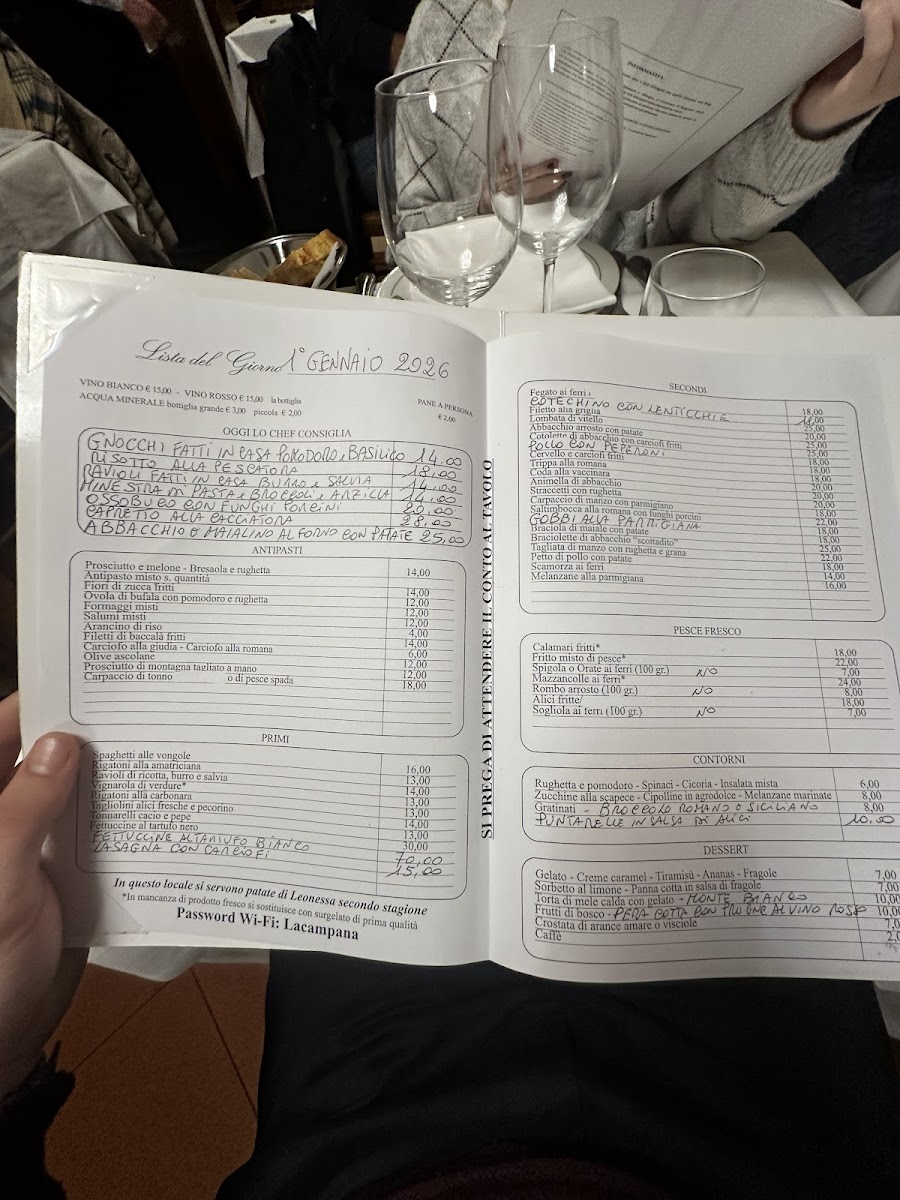 INFORMATIVA
Lista del Giorno 1° GENNAIO 2026
VINO BIANCO € 15,00 - VINO ROSSO € 15,00 la bottiglia
ACQUA MINERALE bottiglia grande € 3,00 piccola € 2,00
PANE A PERSONA
€ 2,00
OGGI LO CHEF CONSIGLIA
GNOCCHI FATTI IN CASA POMODORO e BASILICO 14.00
RISOTTO ALLA PESCATORA 18,00
RAVIOLI FATTI IN CASA BURRO e SALVIA 14,00
MINESTRA DI PASTA e BROCCOLI e ARZILLA 14,00
OSSOBUCO CON FUNGHI PORCINI 20,00
CAPRETTO ALLA CACCIATORA 28,00
ABBACCHIO O MAIALINO AL FORNO CON PATATE 25,00
ANTIPASTI
Prosciutto e melone - Bresaola e rughetta 14,00
Antipasto misto s. quantità
Fiori di zucca fritti 14,00
Ovola di bufala con pomodoro e rughetta 12,00
Formaggi misti 12,00
Salumi misti 12,00
Arancino di riso 4,00
Filetti di baccalà fritti 14,00
Carciofo alla giudia - Carciofo alla romana 6,00
Olive ascolane 12,00
Prosciutto di montagna tagliato a mano 12,00
Carpaccio di tonno o di pesce spada 18,00
PRIMI
Spaghetti alle vongole 16,00
Rigatoni alla amatriciana 13,00
Ravioli di ricotta, burro e salvia 14,00
Vignarola di verdure* 13,00
Rigatoni alla carbonara 13,00
Tagliolini alici fresche e pecorino 14,00
Tonnarelli cacio e pepe 13,00
Fettuccine al tartufo nero 30,00
FETTUCCINE AL TARTUFO BIANCO 70,00
LASAGNA CON CARCIOFI 15,00
In questo locale si servono patate di Leonessa secondo stagione
*In mancanza di prodotto fresco si sostituisce con surgelato di prima qualità
Password Wi-Fi: Lacampana
SI PREGA DI ATTENDERE IL CONTO AL TAVOLO
SECONDI
Fegato ai ferri 18,00
COTECHINO CON LENTICCHIE 18,00
Filetto alla griglia 25,00
Lombata di vitello 20,00
Abbacchio arrosto con patate 25,00
Cotolette di abbacchio con carciofi fritti 20,00
POLLO CON PEPERONI 18,00
Cervello e carciofi fritti 18,00
Trippa alla romana 18,00
Coda alla vaccinara 20,00
Animella di abbacchio 20,00
Straccetti con rughetta 20,00
Carpaccio di manzo con parmigiano 18,00
Saltimbocca alla romana con funghi porcini 22,00
GOBBI ALLA PARMIGIANA 18,00
Braciola di maiale con patate 18,00
Braciolette di abbacchio "scottadito" 25,00
Tagliata di manzo con rughetta e grana 22,00
Petto di pollo con patate 18,00
Scamorza ai ferri 14,00
Melanzane alla parmigiana 16,00
PESCE FRESCO
Calamari fritti* 18,00
Fritto misto di pesce* 22,00
Spigola o Orate ai ferri (100 gr.) NO 7,00
Mazzancolle ai ferri* 24,00
Rombo arrosto (100 gr.) NO 8,00
Alici fritte/ 18,00
Sogliola ai ferri (100 gr.) NO 7,00
CONTORNI
Rughetta e pomodoro - Spinaci - Cicoria - Insalata mista 6,00
Zucchine alla scapece - Cipolline in agrodolce - Melanzane marinate 8,00
Gratinati - BROCCOLO ROMANO O SICILIANO 8,00
PUNTARELLE IN SALSA DI ALICI 10,00
DESSERT
Gelato - Creme caramel - Tiramisù - Ananas - Fragole 7,00
Sorbetto al limone - Panna cotta in salsa di fragole 7,00
Torta di mele calda con gelato - MONTE BIANCO 10,00
Frutti di bosco - PERA COTTA CON PRUGNE AL VINO ROSSO 10,00
Crostata di arance amare o visciole 7,0
Caffè 2,0